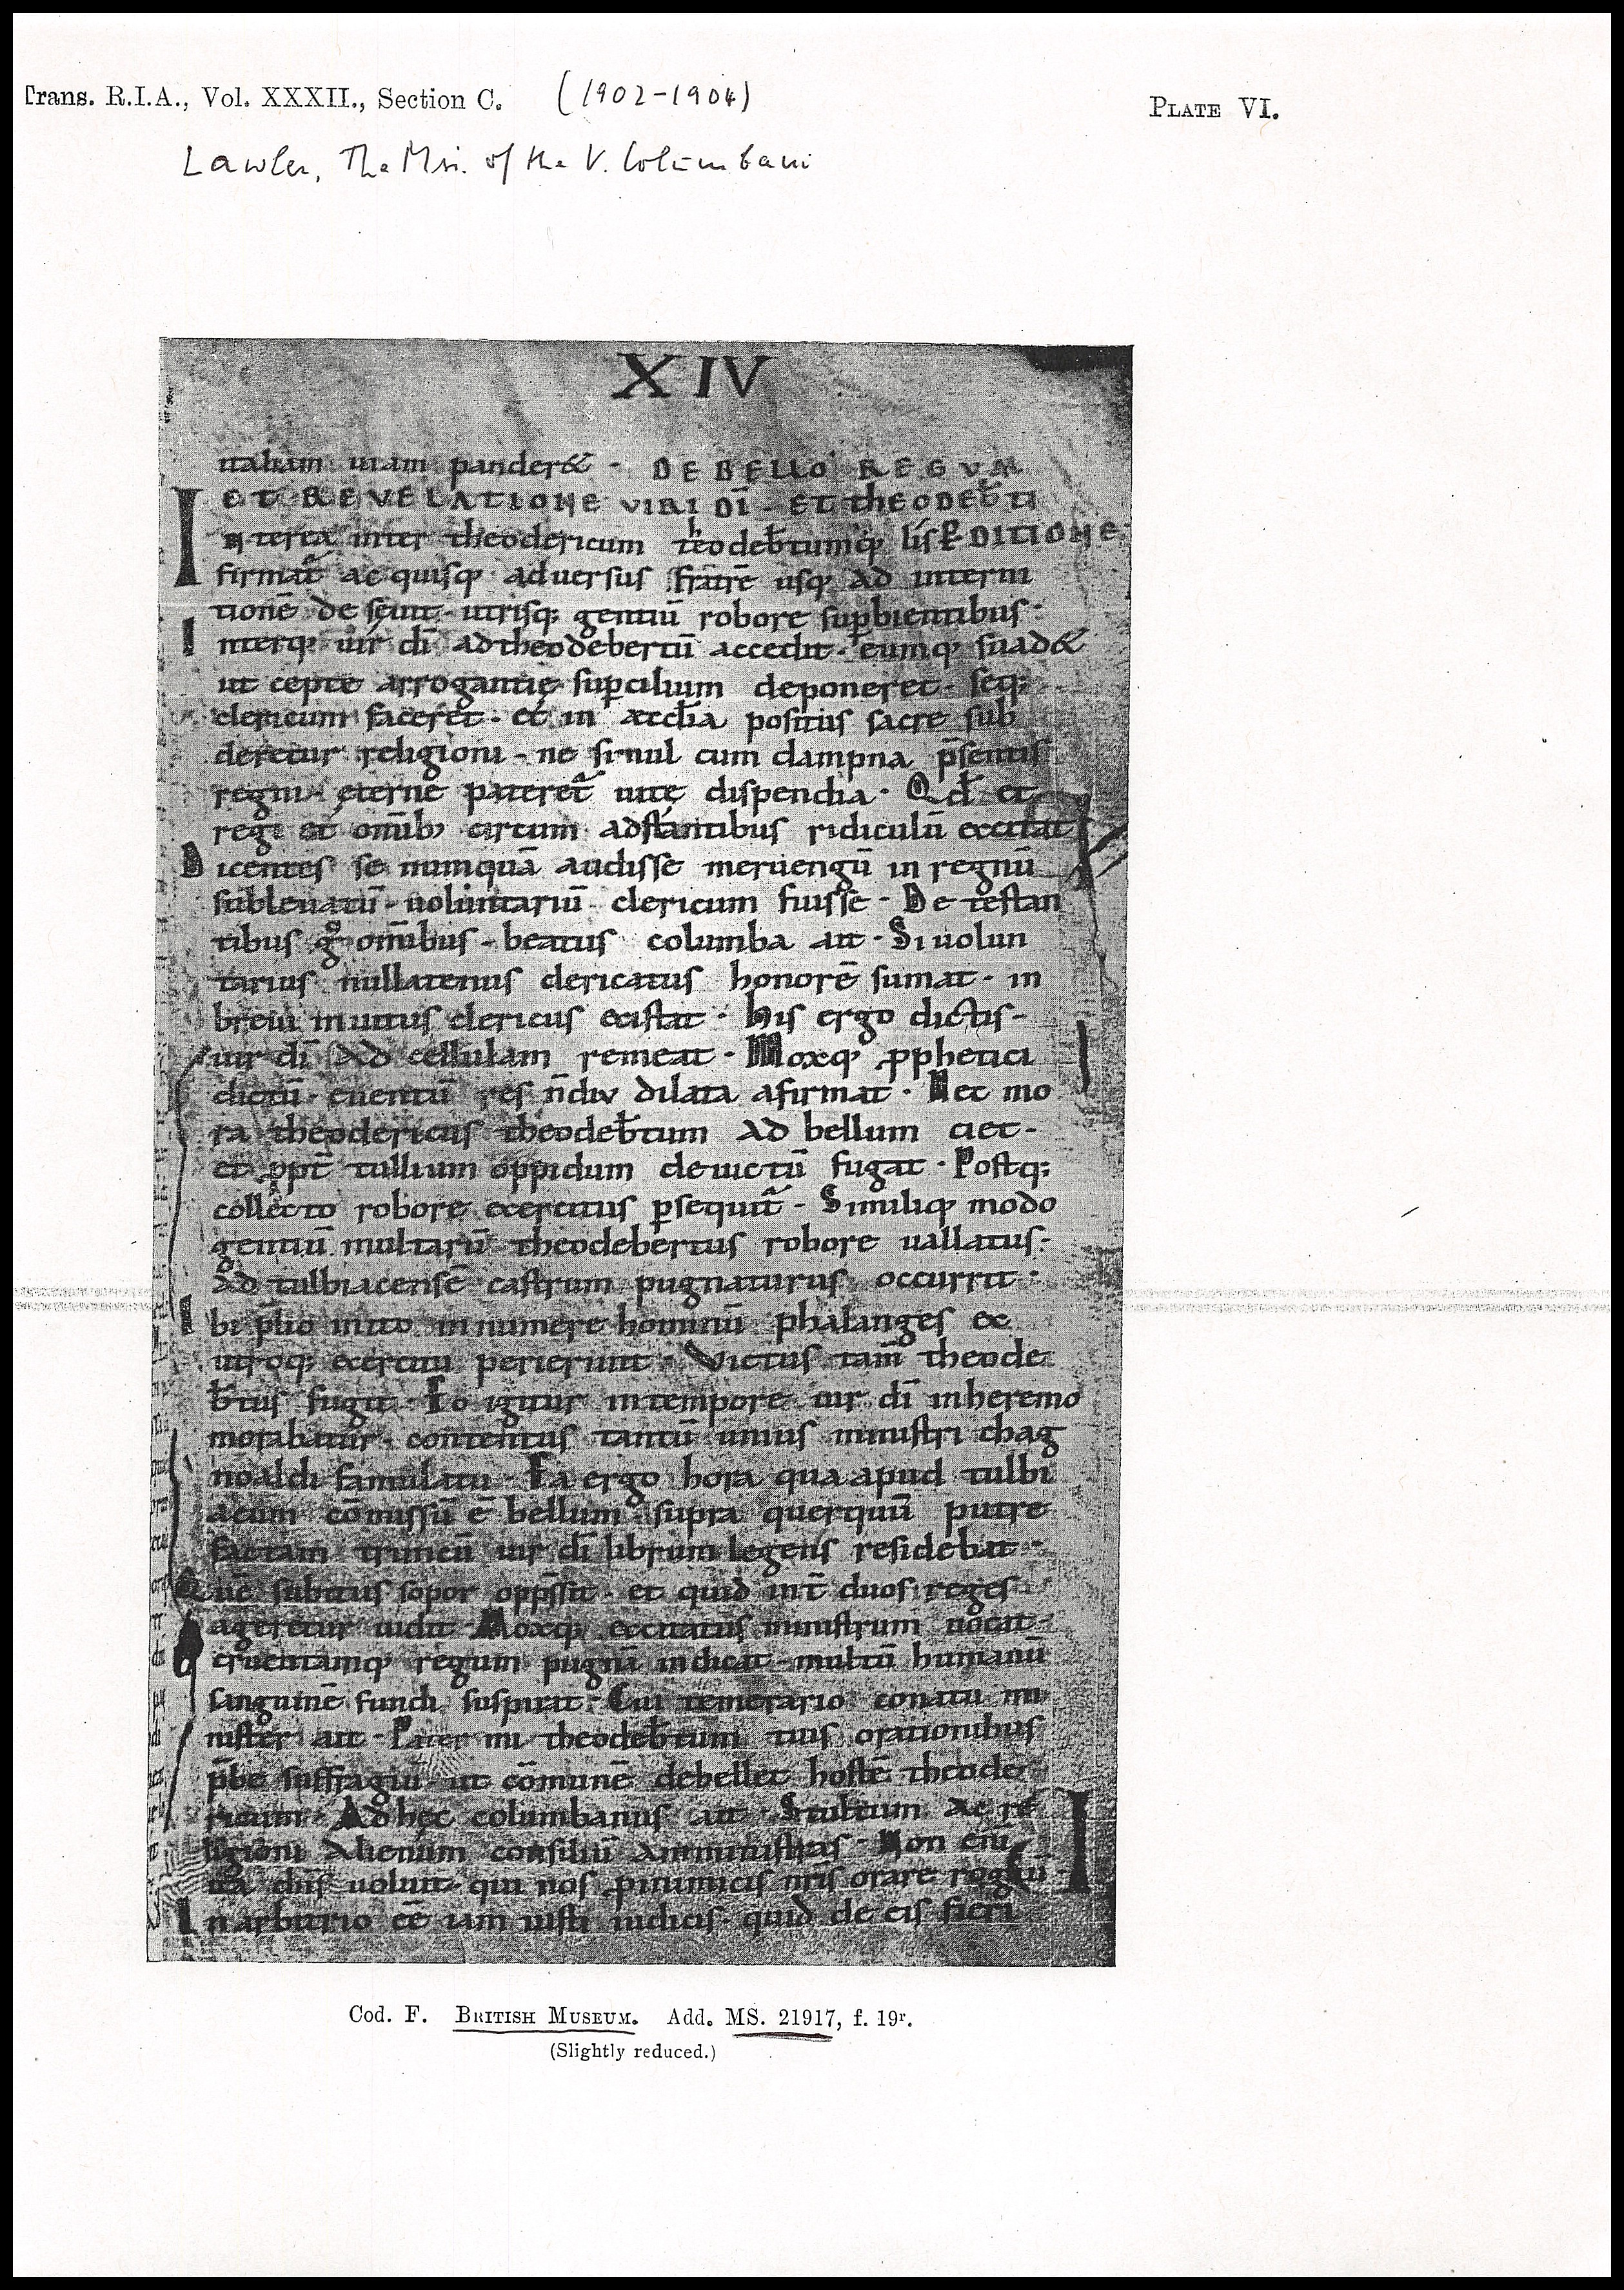 Trans. R.I.A., Vol. XXXII., Section C. (1902-1904)
PLATE VI.
Lawlor, The Mss. of the V. Columbani
XIV
italiam uiam pander& · DE BELLO REGVM
ET REVELATIONE VIRI DĪ · ET THEODEB̄TI
Interea inter theodericum teodeb̄tumq; lis PDITIONE
firmat̄ ac quisq; aduersus fratrē usq; ad interni
tionē deseuit · utrisq; gentiū robore supbientibus ·
Interq; uir dī ad theodebertū accedit · eumq; suad&
ut cepte arrogantie supcilium deponeret · seq;
clericum faceret · et in æccl̄ia positus sacre sub
deretur religioni · ne simul cum dampna p̄sentis
regni · eterne pateret̄ uite dispendia · Qd̄ et
regi et omib; circum adstantibus ridiculū excitat
Dicentes se numquā audisse meruengū in regnū
subleuatū · uoluntariū clericum fuisse · De testan
tibus g° omībus · beatus columba ait · Si uolun
tarius nullatenus clericatus honorē sumat · in
breui inuitus clericus existat · His ergo dictis ·
uir dī ad cellulam remeat · Moxq; pphetici
dictū euentū res n̄diu dilata afirmat · Nec mo
ra theodericus theodeb̄tum ad bellum ciet ·
et ppt̄ tullium oppidum deuictū fugat · Postq;
collecto robore exercitus psequit̄ · Similiq; modo
gentiū multarū theodebertus robore uallatus ·
ad tulbiacensē castrum pugnaturus occurrit :
Ibi p̄lio inito innumere hominū phalanges ex
utroq; exercitu perierunt · Victus tam̄ theode
b̄tus fugit · Eo igitur in tempore uir dī inheremo
morabatur · contentus tantū unius ministri chag
noaldi famulatu · Ea ergo hora qua apud tulbi
acum cōmissū ē bellum · supra querquū putre
factam truncū uir dī librum legens residebat ·
Quē subitus sopor opp̄ssit · et quid int̄ duos reges
ageretur uidit · Moxq; excitatus ministrum uocat ·
cruentamq; regum pugnā indicat · multū humanū
sanguinē fundi suspirat · Cui temerario conatu mi
nister ait · Pater mi theodeb̄tum tuis orationibus
p̄be suffragiū · ut cōmunē debellet hostē theode
ricum · Ad hec columbanus ait · Stultum ac re
ligioni alienum consiliū amministras · Non enī
ita dn̄s uoluit · qui nos p inimicis nr̄is orare rogauit ·
In arbitrio eē iam iusti iudicis · quid de eis fieri
Cod. F. BRITISH MUSEUM. Add. MS. 21917, f. 19r.
(Slightly reduced.)